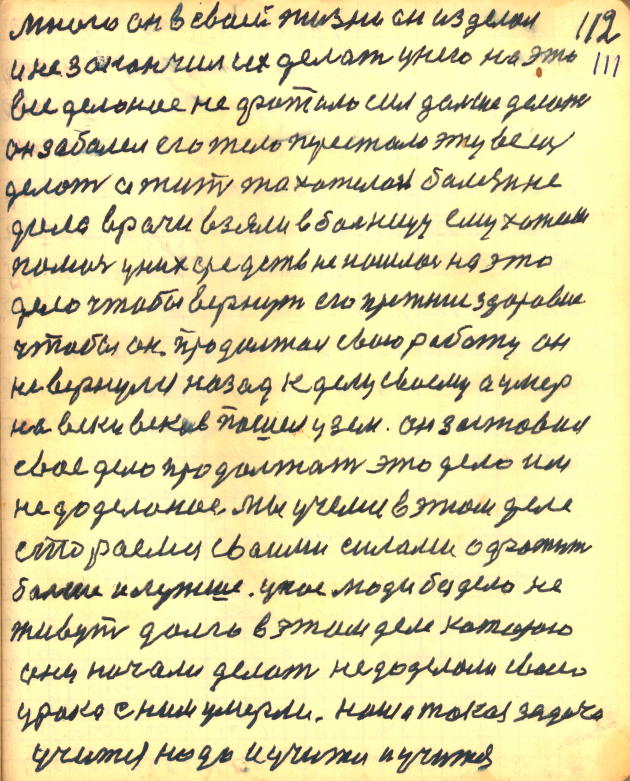 много он в своей жизни он изделол 112
и не закончил их делат у него на это 111
вые делоное не фротало сил дальше делат
он забалел его тело перестало эту вещ
делат а жит та хотелось балезн не
дрела врачи взяли в болницу ему хотели
помоч у них средств не нашлос на это
дело чтобы вернут его прежние здоровие
чтобы он. продолжал свою работу он
не вернулся назад к делу своему а умер
на веки веков пошел у зем. он заставил
свое дело продолжат это дело им
не доделоное. мы учемся в этом деле
стораемся своими силами офотит
болше и лутше. ухое люди бедело не
живут долго в этом деле которого
они начали делат не доделоли своего
урока с ним умерли. наша такая задача
учится надо и учится и учится